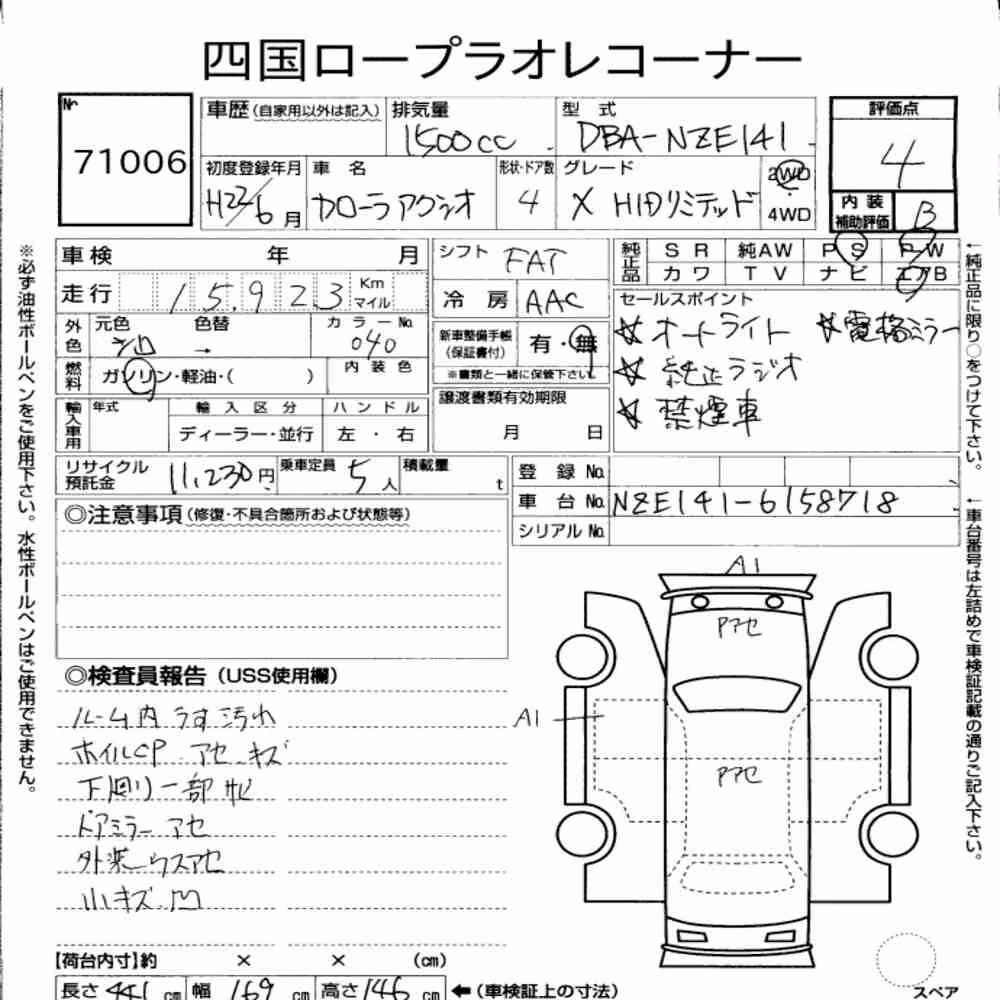 四国ロープラオレコーナー
No.
71006
車歴(自家用以外は記入)
排気量
1500cc
型 式
DBA-NZE141
評価点
4
初度登録年月
H22/6月
車 名
カローラアクシオ
形状・ドア数
4
グレード
X HIDリミテッド
2WD
4WD
内 装
補助評価
B
車検 年 月
シフト
FAT
純正品
SR 純AW PS PW
カワ TV ナビ エアB
走行 15.923
Km
マイル
冷 房
AAC
セールスポイント
☆オートライト ☆電格ミラー
☆純正ラジオ
☆禁煙車
外色
元色 色替
→
カラーNo.
040
新車整備手帳
(保証書付)
有・無
※書類と一緒に保管下さい
燃料
ガソリン・軽油・( )
内 装 色
輸入車用
年式
輸 入 区 分
ハ ン ド ル
ディーラー・並行
左 ・ 右
譲渡書類有効期限
月 日
リサイクル
預託金
11,230円
乗車定員
5人
積載量
t
登 録 No.
車 台 No.
NZE141-6158718
シリアル No.
◎注意事項(修復・不具合箇所および状態等)
◎検査員報告(USS使用欄)
ルーム内うす汚れ
ホイルCP アセ キズ
下廻り一部サビ
ドアミラーアセ
外装ウスアセ
小キズ凹
A1
Pアセ
A1
Pアセ
スペア
【荷台内寸】約 × × (cm)
長さ 441 cm
幅 169 cm
高さ 146 cm
←(車検証上の寸法)
※必ず油性ボールペンをご使用下さい。水性ボールペンはご使用できません。
←純正品に限り○をつけて下さい。
←車台番号は左詰めで車検証記載の通りご記入下さい。